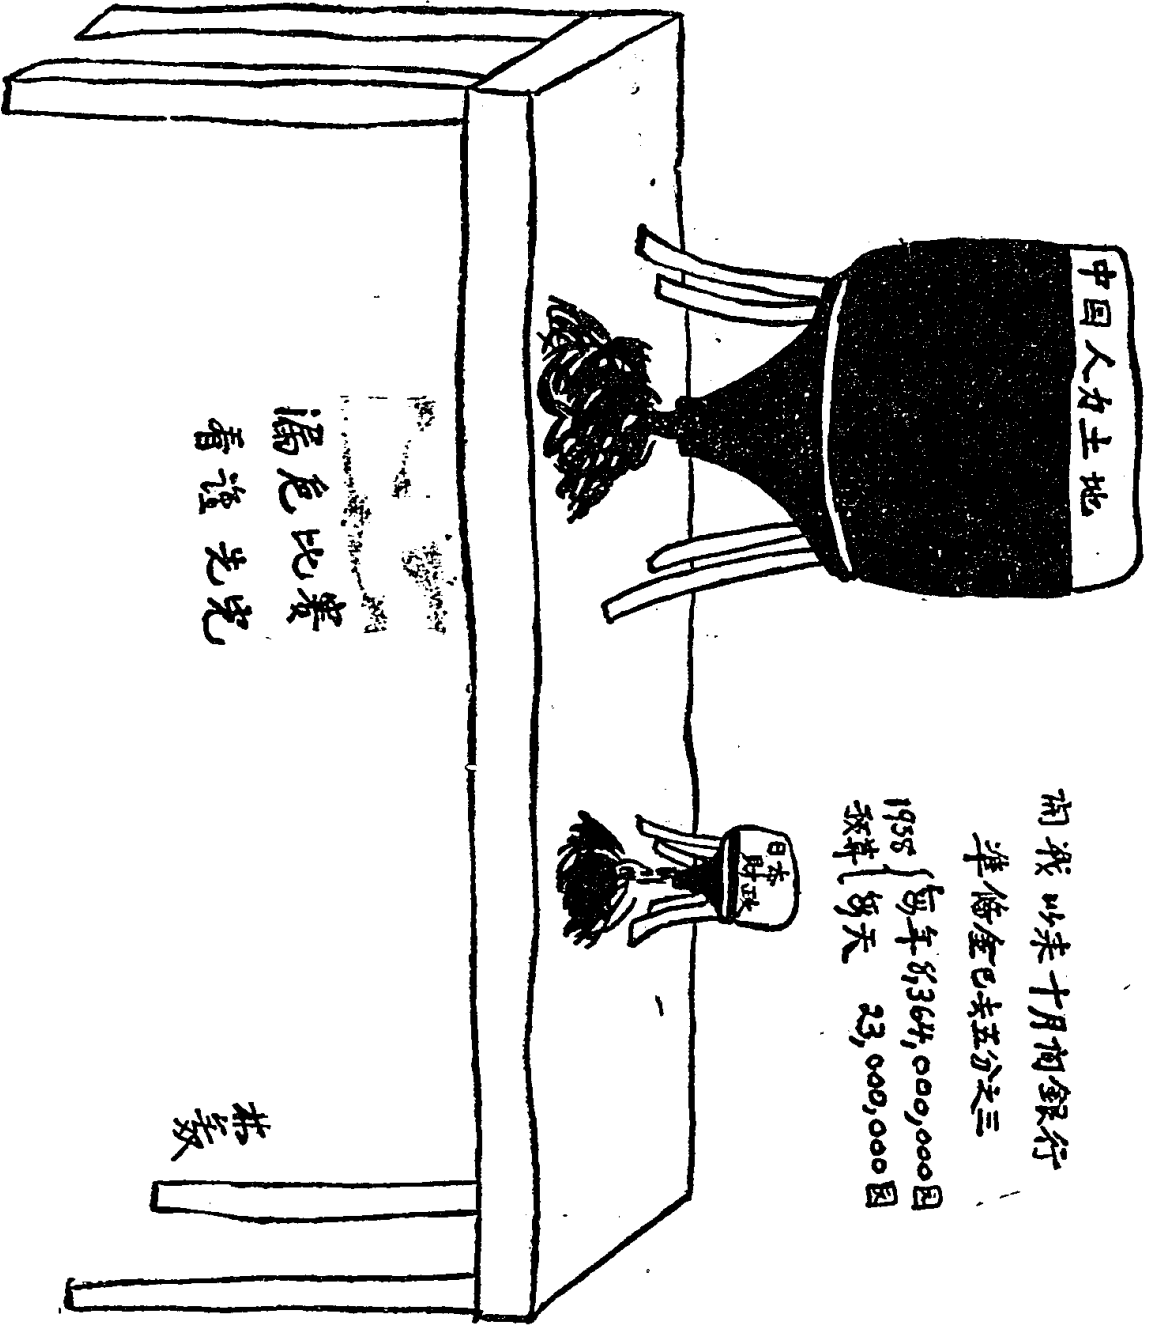 中国人力土地
日本財政
開戰以来十月間銀行
準備金已去五分之三
1938 每年8,364,000,000囗
預算 每天 23,000,000囗
漏卮比賽
看誰先完